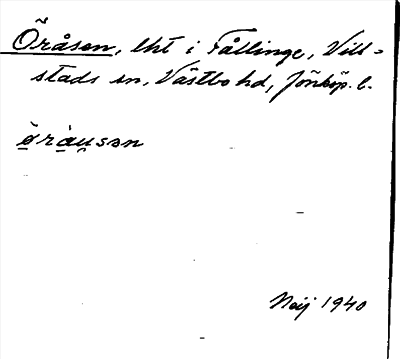 Öråsen, lht i Fållinge, Vill-
stads sn, Västbo hd, Jönköp. l.
ö̱ràu̯sən
1940